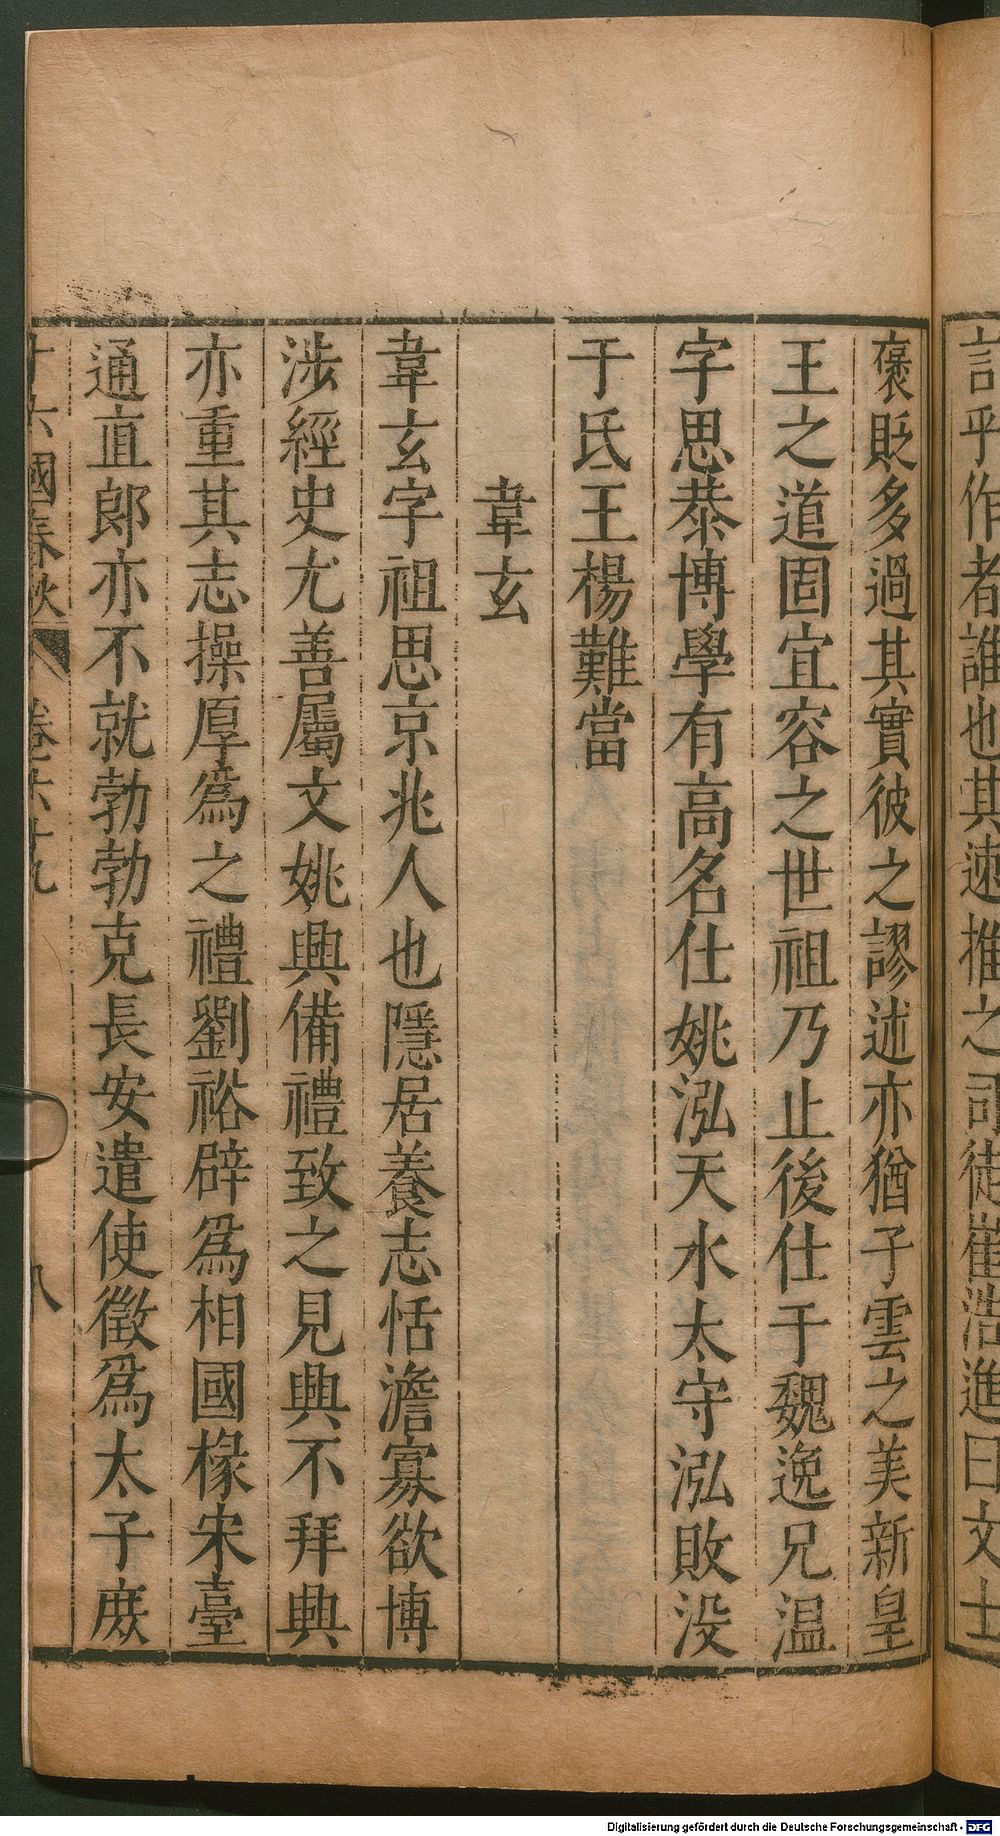 言乎作者誰也其速推之司徒崔浩進曰文士
褒貶多過其實彼之謬述亦猶子雲之美新皇
王之道固宜容之世祖乃止後仕于魏逸兄温
字思恭博學有高名仕姚泓天水太守泓敗没
于氐王楊難當
韋玄
韋玄字祖思京兆人也隱居養志恬澹寡欲博
涉經史尤善屬文姚興備禮致之見興不拜興
亦重其志操厚爲之禮劉裕辟爲相國椽宋臺
通直郎亦不就勃勃克長安遣使徵爲太子庶
十六國春秋 卷六十九 八
Digitalisierung gefördert durch die Deutsche Forschungsgemeinschaft - DFG